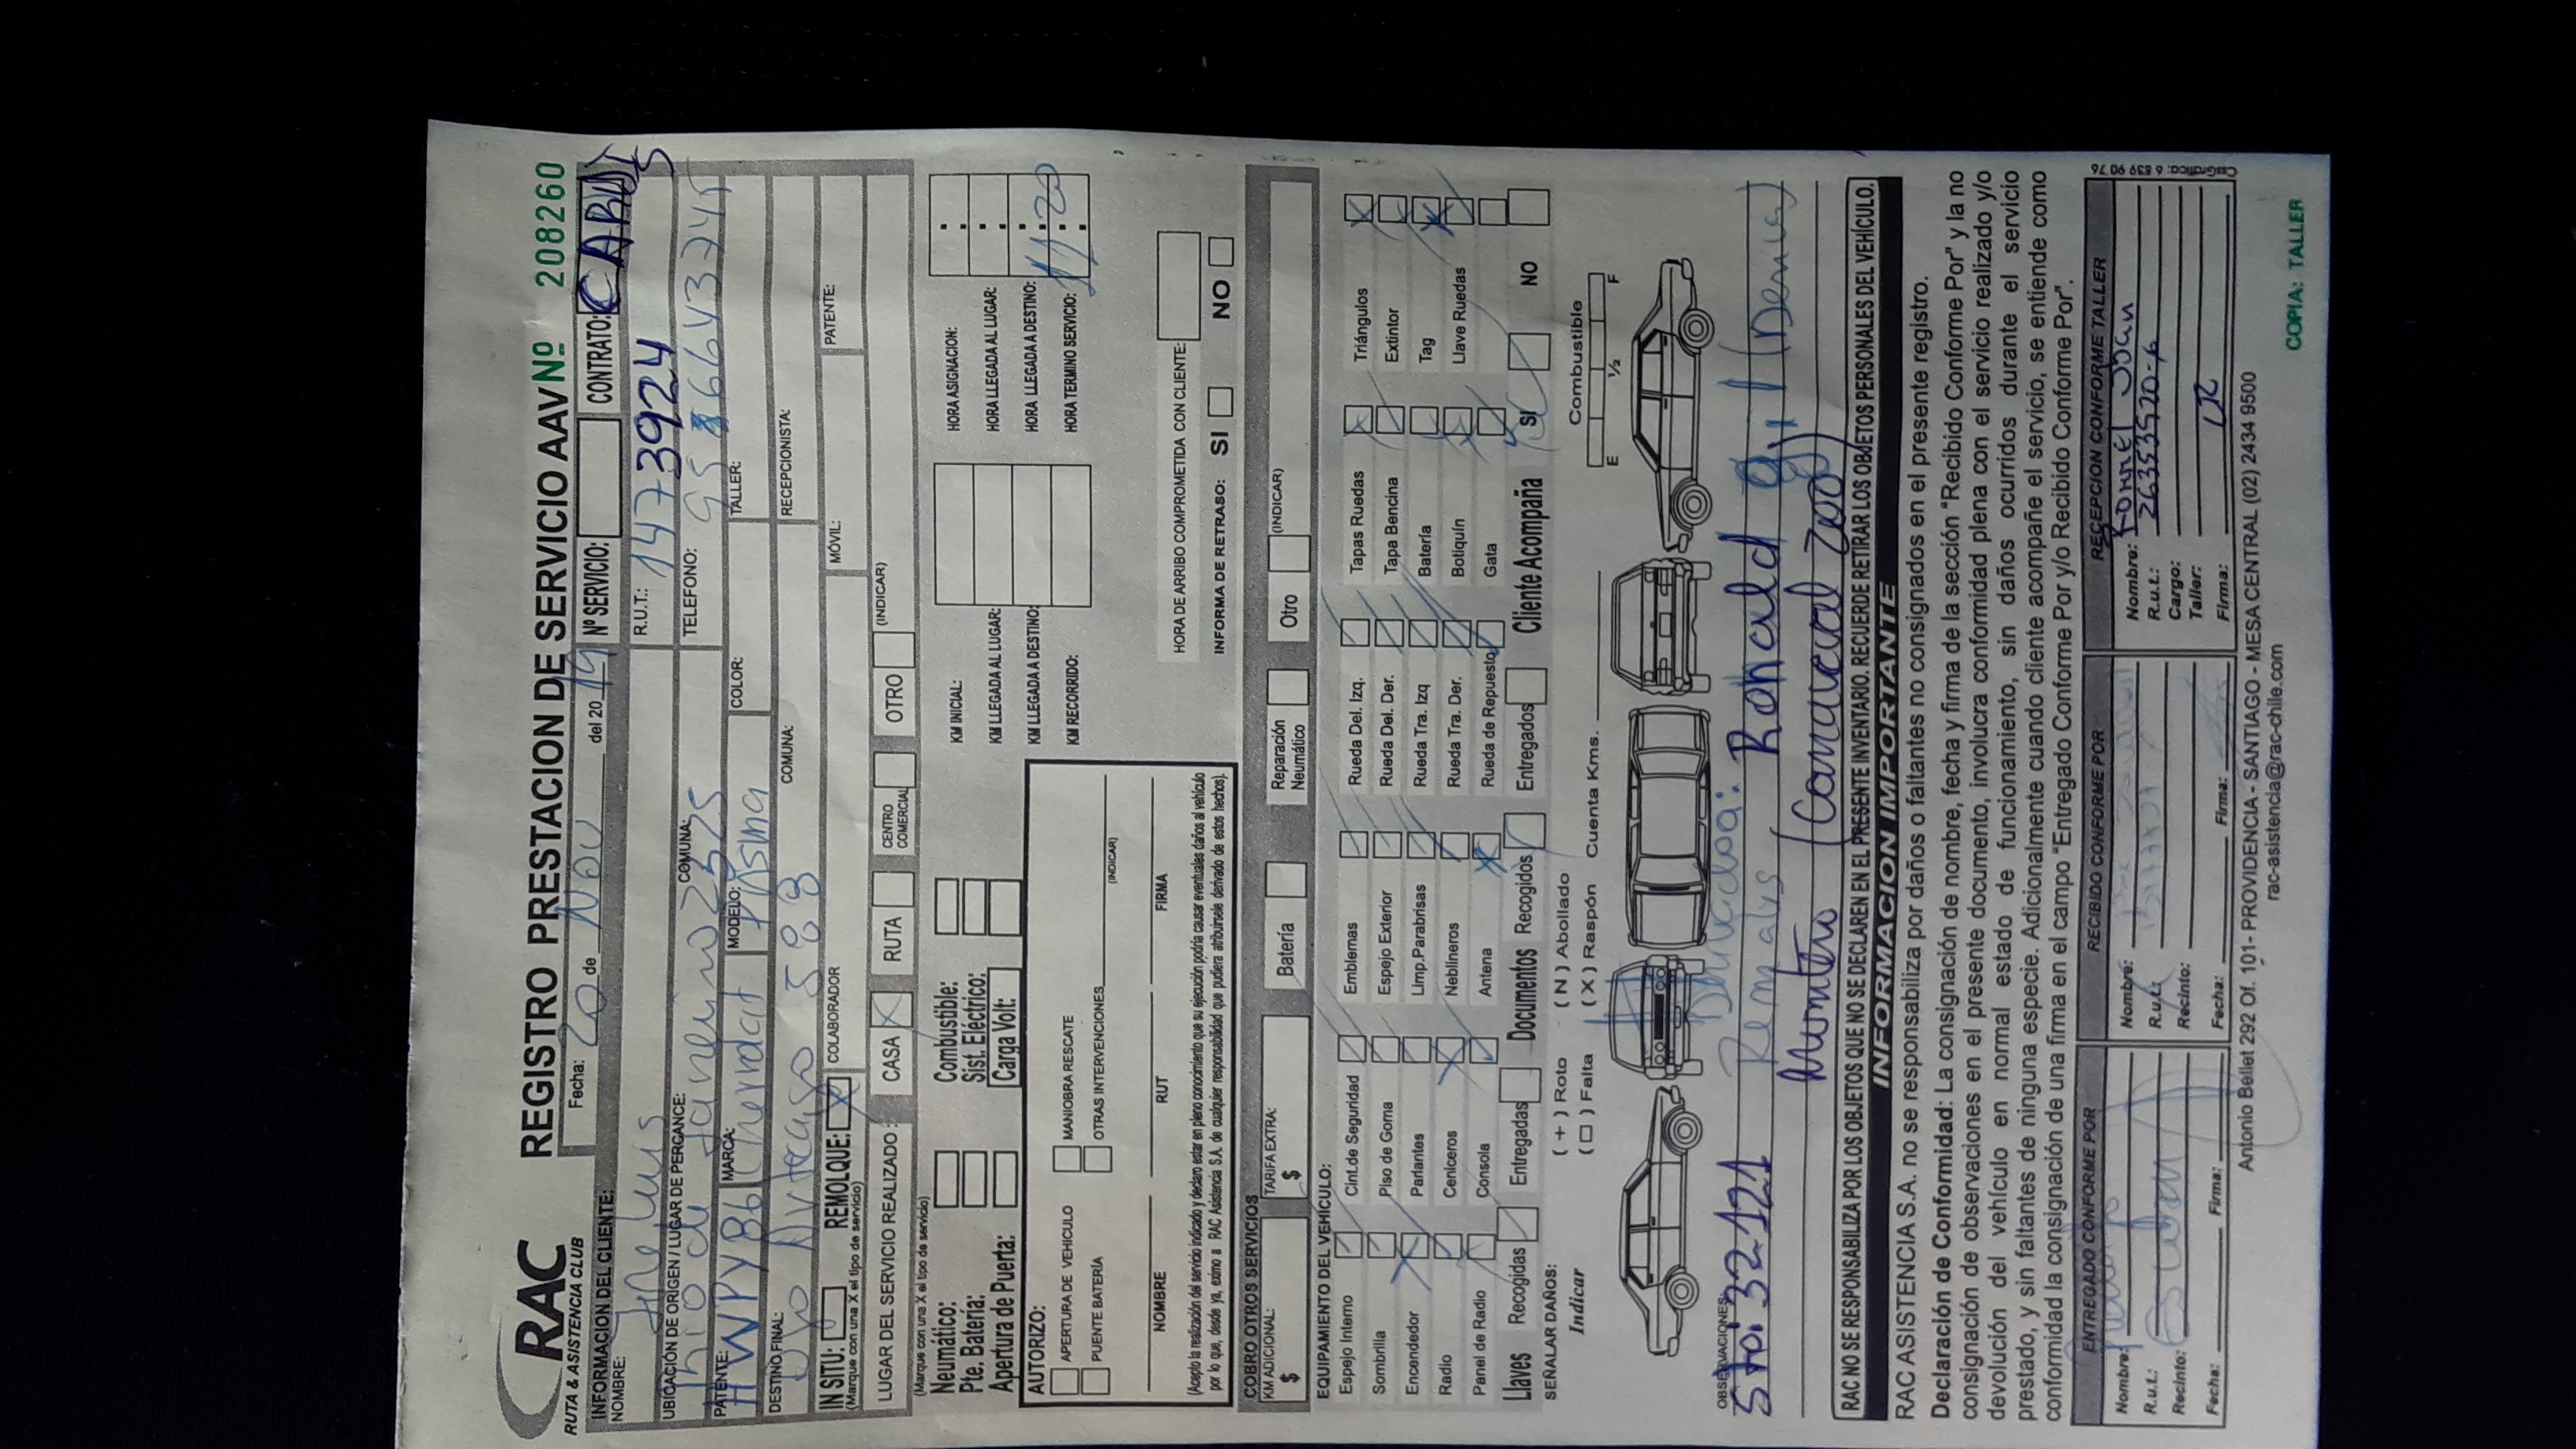 RAC
RUTA & ASISTENCIA CLUB
REGISTRO PRESTACION DE SERVICIO AAV Nº 208260
INFORMACION DEL CLIENTE:
Fecha: 20 de Nov del 2019 Nº SERVICIO: CONTRATO: CARDIF
NOMBRE: R.U.T.: 14773924
UBICACION DE ORIGEN / LUGAR DE PERCANCE: Rio de Janeiro 2525 COMUNA: TELEFONO:
PATENTE: HWPY86 MARCA: Chevrolat MODELO: Prisma COLOR: TALLER:
DESTINO FINAL: 583 COMUNA: RECEPCIONISTA:
IN SITU: REMOLQUE: X COLABORADOR MÓVIL: PATENTE:
(Marque con una X el tipo de servicio)
LUGAR DEL SERVICIO REALIZADO: CASA X RUTA CENTRO COMERCIAL OTRO (INDICAR)
(Marque con una X el tipo de servicio)
Neumático: Combustible:
Pte. Batería: Sist. Eléctrico:
Apertura de Puerta: Carga Volt:
KM INICIAL: HORA ASIGNACION: :
KM LLEGADA AL LUGAR: HORA LLEGADA AL LUGAR: :
KM LLEGADA A DESTINO: HORA LLEGADA A DESTINO: :
KM RECORRIDO: HORA TERMINO SERVICIO: 11:20
AUTORIZO:
APERTURA DE VEHICULO MANIOBRA RESCATE
PUENTE BATERÍA OTRAS INTERVENCIONES (INDICAR)
NOMBRE RUT FIRMA
(Acepto la realización del servicio indicado y declaro estar en pleno conocimiento que su ejecución podría causar eventuales daños al vehículo
por lo que, desde ya, eximo a RAC Asistencia S.A. de cualquier responsabilidad que pudiera atribuírsele derivado de estos hechos).
HORA DE ARRIBO COMPROMETIDA CON CLIENTE:
INFORMA DE RETRASO: SI NO
COBRO OTROS SERVICIOS
KM ADICIONAL: $ TARIFA EXTRA: $ Batería Reparación Neumático Otro (INDICAR)
EQUIPAMIENTO DEL VEHÍCULO:
Espejo Interno Cint.de Seguridad Emblemas Rueda Del. Izq. Tapas Ruedas Triángulos
Sombrilla Piso de Goma Espejo Exterior Rueda Del. Der. Tapa Bencina Extintor
Encendedor Parlantes Limp.Parabrisas Rueda Tra. Izq Batería Tag
Radio Ceniceros Neblineros Rueda Tra. Der. Botiquín Llave Ruedas
Panel de Radio Consola Antena Rueda de Repuesto Gata
Llaves Recogidas Entregadas Documentos Recogidos Entregados Cliente Acompaña SI NO
SEÑALAR DAÑOS: ( + ) Roto ( N ) Abollado
Indicar ( □ ) Falta ( X ) Raspón Cuenta Kms. Combustible
E ½ F
OBSERVACIONES:
Sto: 32121 Ronald
Rematis
RAC NO SE RESPONSABILIZA POR LOS OBJETOS QUE NO SE DECLAREN EN EL PRESENTE INVENTARIO. RECUERDE RETIRAR LOS OBJETOS PERSONALES DEL VEHÍCULO.
INFORMACION IMPORTANTE
RAC ASISTENCIA S.A. no se responsabiliza por daños o faltantes no consignados en el presente registro.
Declaración de Conformidad: La consignación de nombre, fecha y firma de la sección "Recibido Conforme Por" y la no
consignación de observaciones en el presente documento, involucra conformidad plena con el servicio realizado y/o
devolución del vehículo en normal estado de funcionamiento, sin daños ocurridos durante el servicio
prestado, y sin faltantes de ninguna especie. Adicionalmente cuando cliente acompañe el servicio, se entiende como
conformidad la consignación de una firma en el campo "Entregado Conforme Por y/o Recibido Conforme Por".
ENTREGADO CONFORME POR RECIBIDO CONFORME POR RECEPCION CONFORME TALLER
Nombre: Nombre: Nombre:
R.u.t.: R.u.t.: R.u.t.:
Recinto: Recinto: Cargo:
Taller:
Fecha: Firma: Fecha: Firma: Firma:
Antonio Bellet 292 Of. 101- PROVIDENCIA - SANTIAGO - MESA CENTRAL (02) 2434 9500
rac-asistencia@rac-chile.com
COPIA: TALLER
CasGrafica: 6 839 90 76